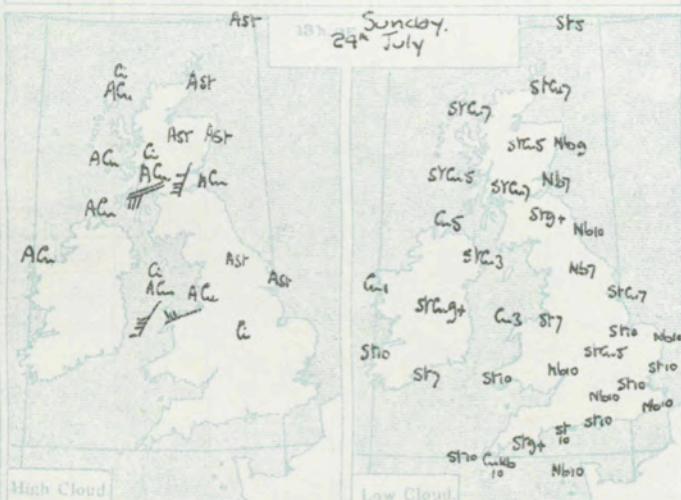 Sunday.
29th July
ASt
Ci
ACu
ASt
ASt ASt
ACu
Ci
ACu
ACu
ACu
ACu
ASt
ASt
Ci
ACu
ACu
Ci
High Cloud
St5
StCu7
StCu7
StCu5 Nb9
StCu5
StCu7
Nb7
St9+
Cu5
Nb10
StCu3
Nb7
Cu1
StCu7
StCu9+
Cu3
St7
St10
Nb10
StCu5
St10
St10
St7
St10
Nb10
St10
Nb10
Nb10
St
10
St10
St9+
St10
CuNb
10
Nb10
Low Cloud